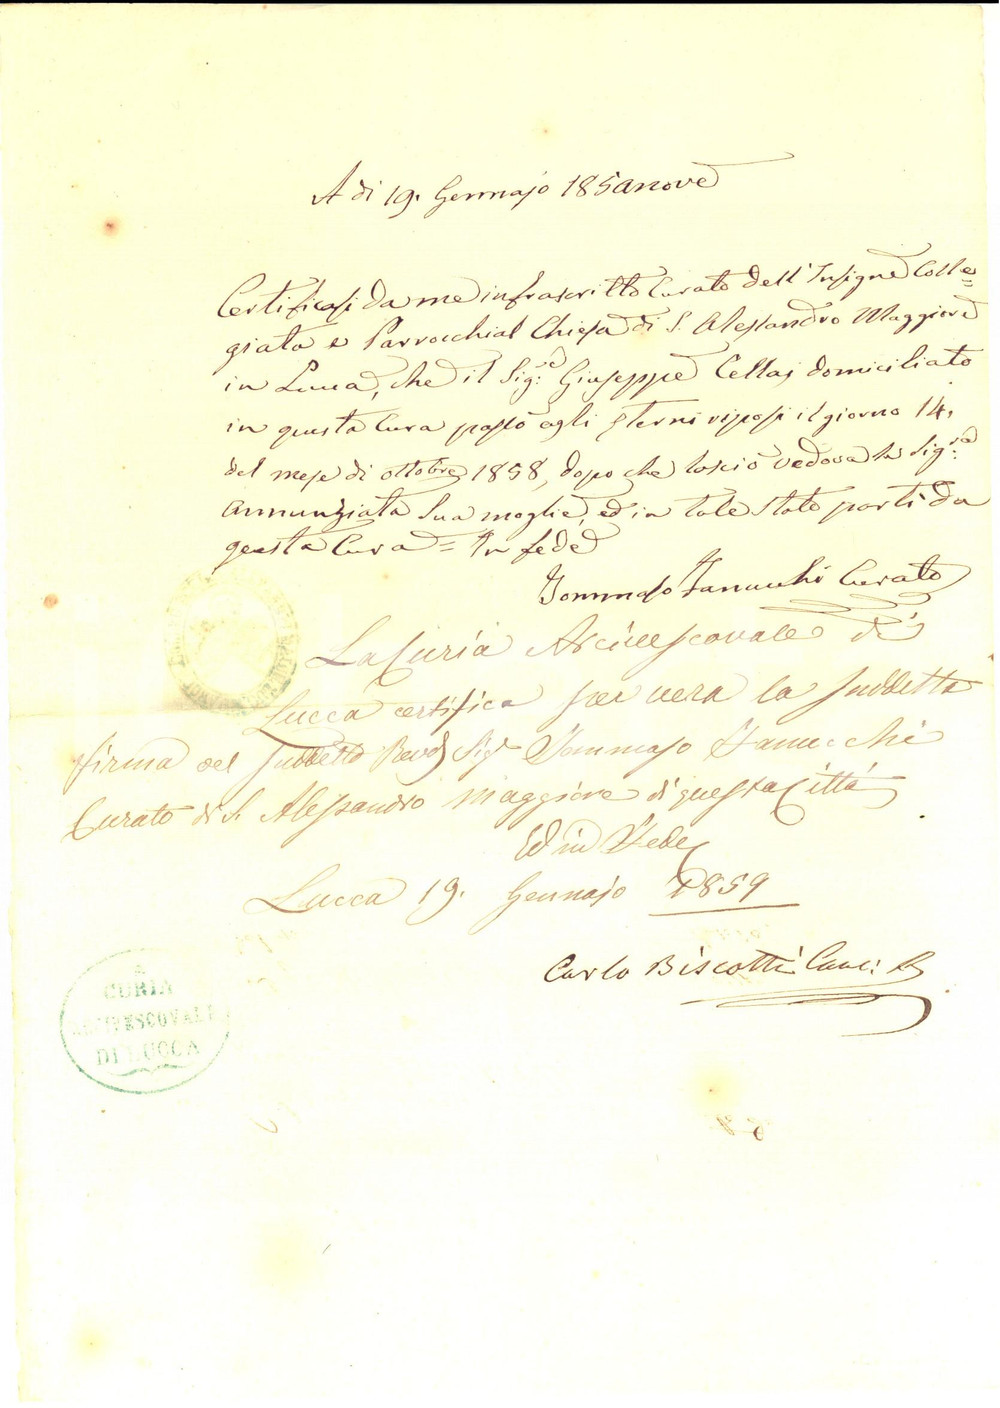 A di 19. Gennajo 185anove
Certificasi da me infrascritto Curato dell'Insigne Colle=
giata e Parrocchial Chiesa di S. Alessandro Maggiore
in Lucca, che il Sig:re Giuseppe Cellai domiciliato
in questa Cura passò agli eterni riposi il giorno 14.
del mese di ottobre 1858, dopo che lasciò vedova la Sig:ra
Annunziata sua moglie, ed in tale stato partì da
questa Cura = In fede
Tommaso Fanucchi Curato
La Curia Arcivescovale di
Lucca certifica per vera la suddetta
firma del suddetto Revd Sigr Tommaso Fanucchi
Curato di S. Alessandro Maggiore di questa Città
Ed in Fede
Lucca 19. Gennajo 1859
Carlo Biscotti Canc:
CURIA
ARCIVESCOVALE
DI LUCCA